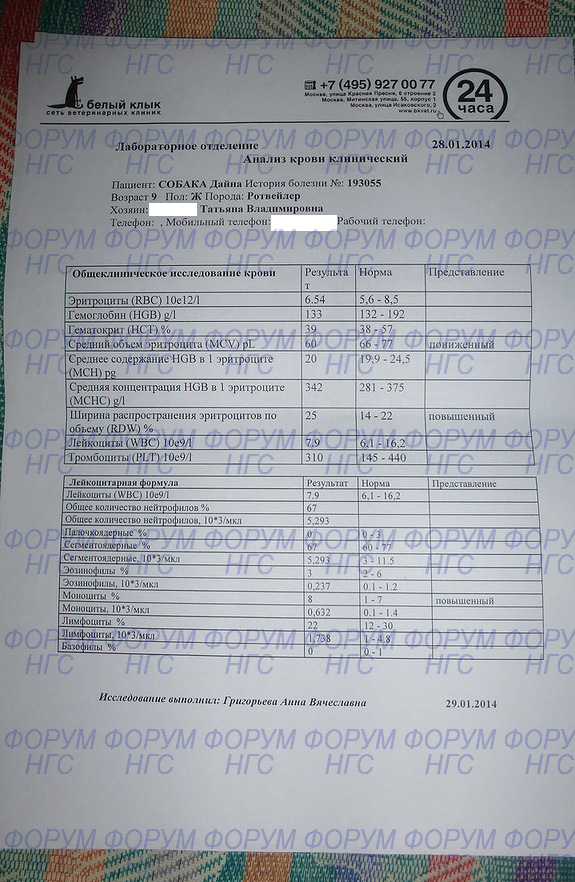 белый клык
сеть ветеринарных клиник
+7 (495) 927 00 77
Москва, улица Красная Пресня, 6 строение 2
Москва, Митинская улица, 55, корпус 1
Москва, улица Исаковского, 2
www.bkvet.ru
24 часа
Лабораторное отделение 28.01.2014
Анализ крови клинический
Пациент: СОБАКА Дайна История болезни №: 193055
Возраст 9 Пол: Ж Порода: Ротвейлер
Хозяин: Татьяна Владимировна
Телефон: , Мобильный телефон: Рабочий телефон:
Общеклиническое исследование крови Результат Норма Представление
Эритроциты (RBC) 10e12/l 6.54 5,6 - 8,5
Гемоглобин (HGB) g/l 133 132 - 192
Гематокрит (HCT) % 39 38 - 57
Средний объем эритроцита (MCV) pL 60 66 - 77 пониженный
Среднее содержание HGB в 1 эритроците (MCH) pg 20 19,9 - 24,5
Средняя концентрация HGB в 1 эритроците (MCHC) g/l 342 281 - 375
Ширина распространения эритроцитов по объему (RDW) % 25 14 - 22 повышенный
Лейкоциты (WBC) 10e9/l 7,9 6,1 - 16,2
Тромбоциты (PLT) 10e9/l 310 145 - 440
Лейкоцитарная формула Результат Норма Представление
Лейкоциты (WBC) 10e9/l 7.9 6,1 - 16,2
Общее количество нейтрофилов % 67
Общее количество нейтрофилов, 10*3/мкл 5,293
Палочкоядерные % 0 0 - 3
Сегментоядерные % 67 60 - 77
Сегментоядерные, 10*3/мкл 5,293 3 - 11.5
Эозинофилы % 3 2 - 6
Эозинофилы, 10*3/мкл 0,237 0.1 - 1.2
Моноциты % 8 1 - 7 повышенный
Моноциты, 10*3/мкл 0,632 0.1 - 1.4
Лимфоциты % 22 12 - 30
Лимфоциты, 10*3/мкл 1,738 1 - 4.8
Базофилы % 0 0 - 1
Исследование выполнил: Григорьева Анна Вячеславна 29.01.2014
ФОРУМ НГС